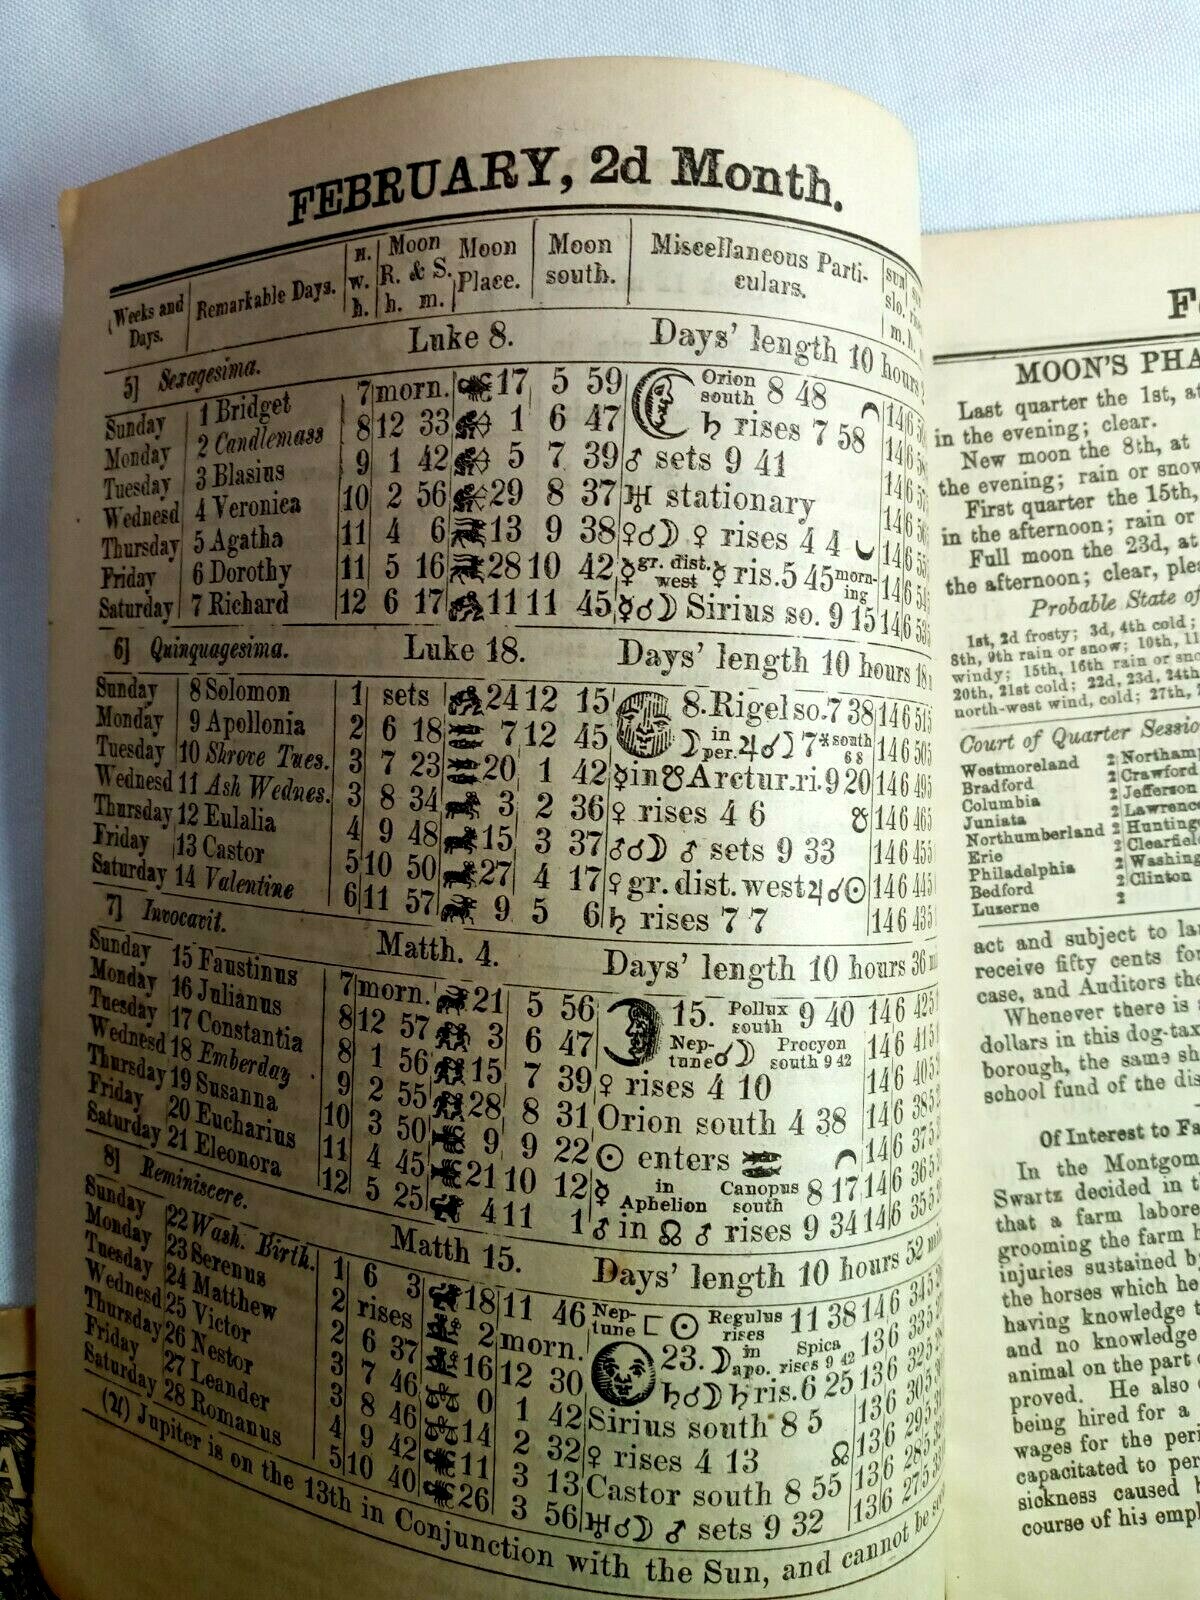 FEBRUARY, 2d Month.
Weeks and Days. Remarkable Days. H. w. h. Moon R. & S. h. m. Moon Place. Moon south. Miscellaneous Particulars. sun slo. m.
5] Sexagesima. Luke 8. Days' length 10 hours
Sunday 1 Bridget 7 morn. 17 5 59 ☾ Orion south 8 48
Monday 2 Candlemass 8 12 33 1 6 47 ♄ rises 7 58 14 6
Tuesday 3 Blasius 9 1 42 5 7 39 ♂ sets 9 41 14 6
Wednesd 4 Veronica 10 2 56 29 8 37 ♅ stationary 14 6
Thursday 5 Agatha 11 4 6 13 9 38 ♀☌☽ ♀ rises 4 4 14 6
Friday 6 Dorothy 11 5 16 28 10 42 ☿ gr. dist. west ☿ ris. 5 45 morning 14 6
Saturday 7 Richard 12 6 17 11 11 45 ☿☌☽ Sirius so. 9 15 14 6 53 5
6] Quinquagesima. Luke 18. Days' length 10 hours 18
Sunday 8 Solomon 1 sets 24 12 15 8. Rigel so. 7 38 14 6 51 5
Monday 9 Apollonia 2 6 18 7 12 45 ☽ in per. ♃☌☽ 7* south 6 8 14 6 50 5
Tuesday 10 Shrove Tues. 3 7 23 20 1 42 ☿ in ☋ Arctur. ri. 9 20 14 6 49 5
Wednesd 11 Ash Wednes. 3 8 34 3 2 36 ♀ rises 4 6 ☋ 14 6 46 5
Thursday 12 Eulalia 4 9 48 15 3 37 ♂☌☽ ♂ sets 9 33 14 6 45 5
Friday 13 Castor 5 10 50 27 4 17 ♀ gr. dist. west ♃☌☉ 14 6 44 5
Saturday 14 Valentine 6 11 57 9 5 6 ♄ rises 7 7 14 6 43 5
7] Invocavit. Matth. 4. Days' length 10 hours 36 m
Sunday 15 Faustinus 7 morn. 21 5 56 15. Pollux south 9 40 14 6 42 5
Monday 16 Julianus 8 12 57 3 6 47 Neptune ☌☽ Procyon south 9 42 14 6 41 5
Tuesday 17 Constantia 8 1 56 15 7 39 ♀ rises 4 10 14 6 40 5
Wednesd 18 Emberday 9 2 55 28 8 31 Orion south 4 38 14 6 38 5
Thursday 19 Susanna 10 3 50 9 9 22 ☉ enters ♓ 14 6 37 5
Friday 20 Eucharius 11 4 45 21 10 12 ☿ in Aphelion Canopus south 8 17 14 6 36 5
Saturday 21 Eleonora 12 5 25 4 11 1 ♂ in ☊ ♂ rises 9 34 14 6 35 5
8] Reminiscere. Matth 15. Days' length 10 hours 52 min
Sunday 22 Wash. Birth. 1 6 3 18 11 46 Neptune □ ☉ Regulus rises 11 38 14 6 34 5
Monday 23 Serenus 2 rises 2 morn. 23. ☽ in apo. Spica rises 9 42 13 6 33 5
Tuesday 24 Matthew 2 6 37 16 12 30 ♄☌☽ ♄ ris. 6 25 13 6 32 5
Wednesd 25 Victor 3 7 46 0 1 42 Sirius south 8 5 13 6 30 5
Thursday 26 Nestor 3 8 46 14 2 32 ♀ rises 4 13 ☊ 13 6 29 5
Friday 27 Leander 4 9 42 11 3 13 Castor south 8 55 13 6 28 5
Saturday 28 Romanus 5 10 40 26 3 56 ♅☌☽ ♂ sets 9 32 13 6 27 5
(♃) Jupiter is on the 13th in Conjunction with the Sun, and cannot be
F
MOON'S PHA
Last quarter the 1st, at
in the evening; clear.
New moon the 8th, at
the evening; rain or snow
First quarter the 15th,
in the afternoon; rain or
Full moon the 23d, at
the afternoon; clear, plea
Probable State of
1st, 2d frosty; 3d, 4th cold;
8th, 9th rain or snow; 10th, 11
windy; 15th, 16th rain or sno
20th, 21st cold; 22d, 23d, 24th
north-west wind, cold; 27th,
Court of Quarter Sessio
Westmoreland 2 Northam
Bradford 2 Crawford
Columbia 2 Jefferson
Juniata 2 Lawrence
Northumberland 2 Hunting
Erie 2 Clearfield
Philadelphia 2 Washing
Bedford 2 Clinton
Luzerne 2
act and subject to la
receive fifty cents for
case, and Auditors the
Whenever there is
dollars in this dog-tax
borough, the same sh
school fund of the dis
Of Interest to Fa
In the Montgom
Swartz decided in t
that a farm labore
grooming the farm h
injuries sustained by
the horses which he
having knowledge
and no knowledge
animal on the part o
proved. He also
being hired for a
wages for the peri
capacitated to per
sickness caused b
course of his emp